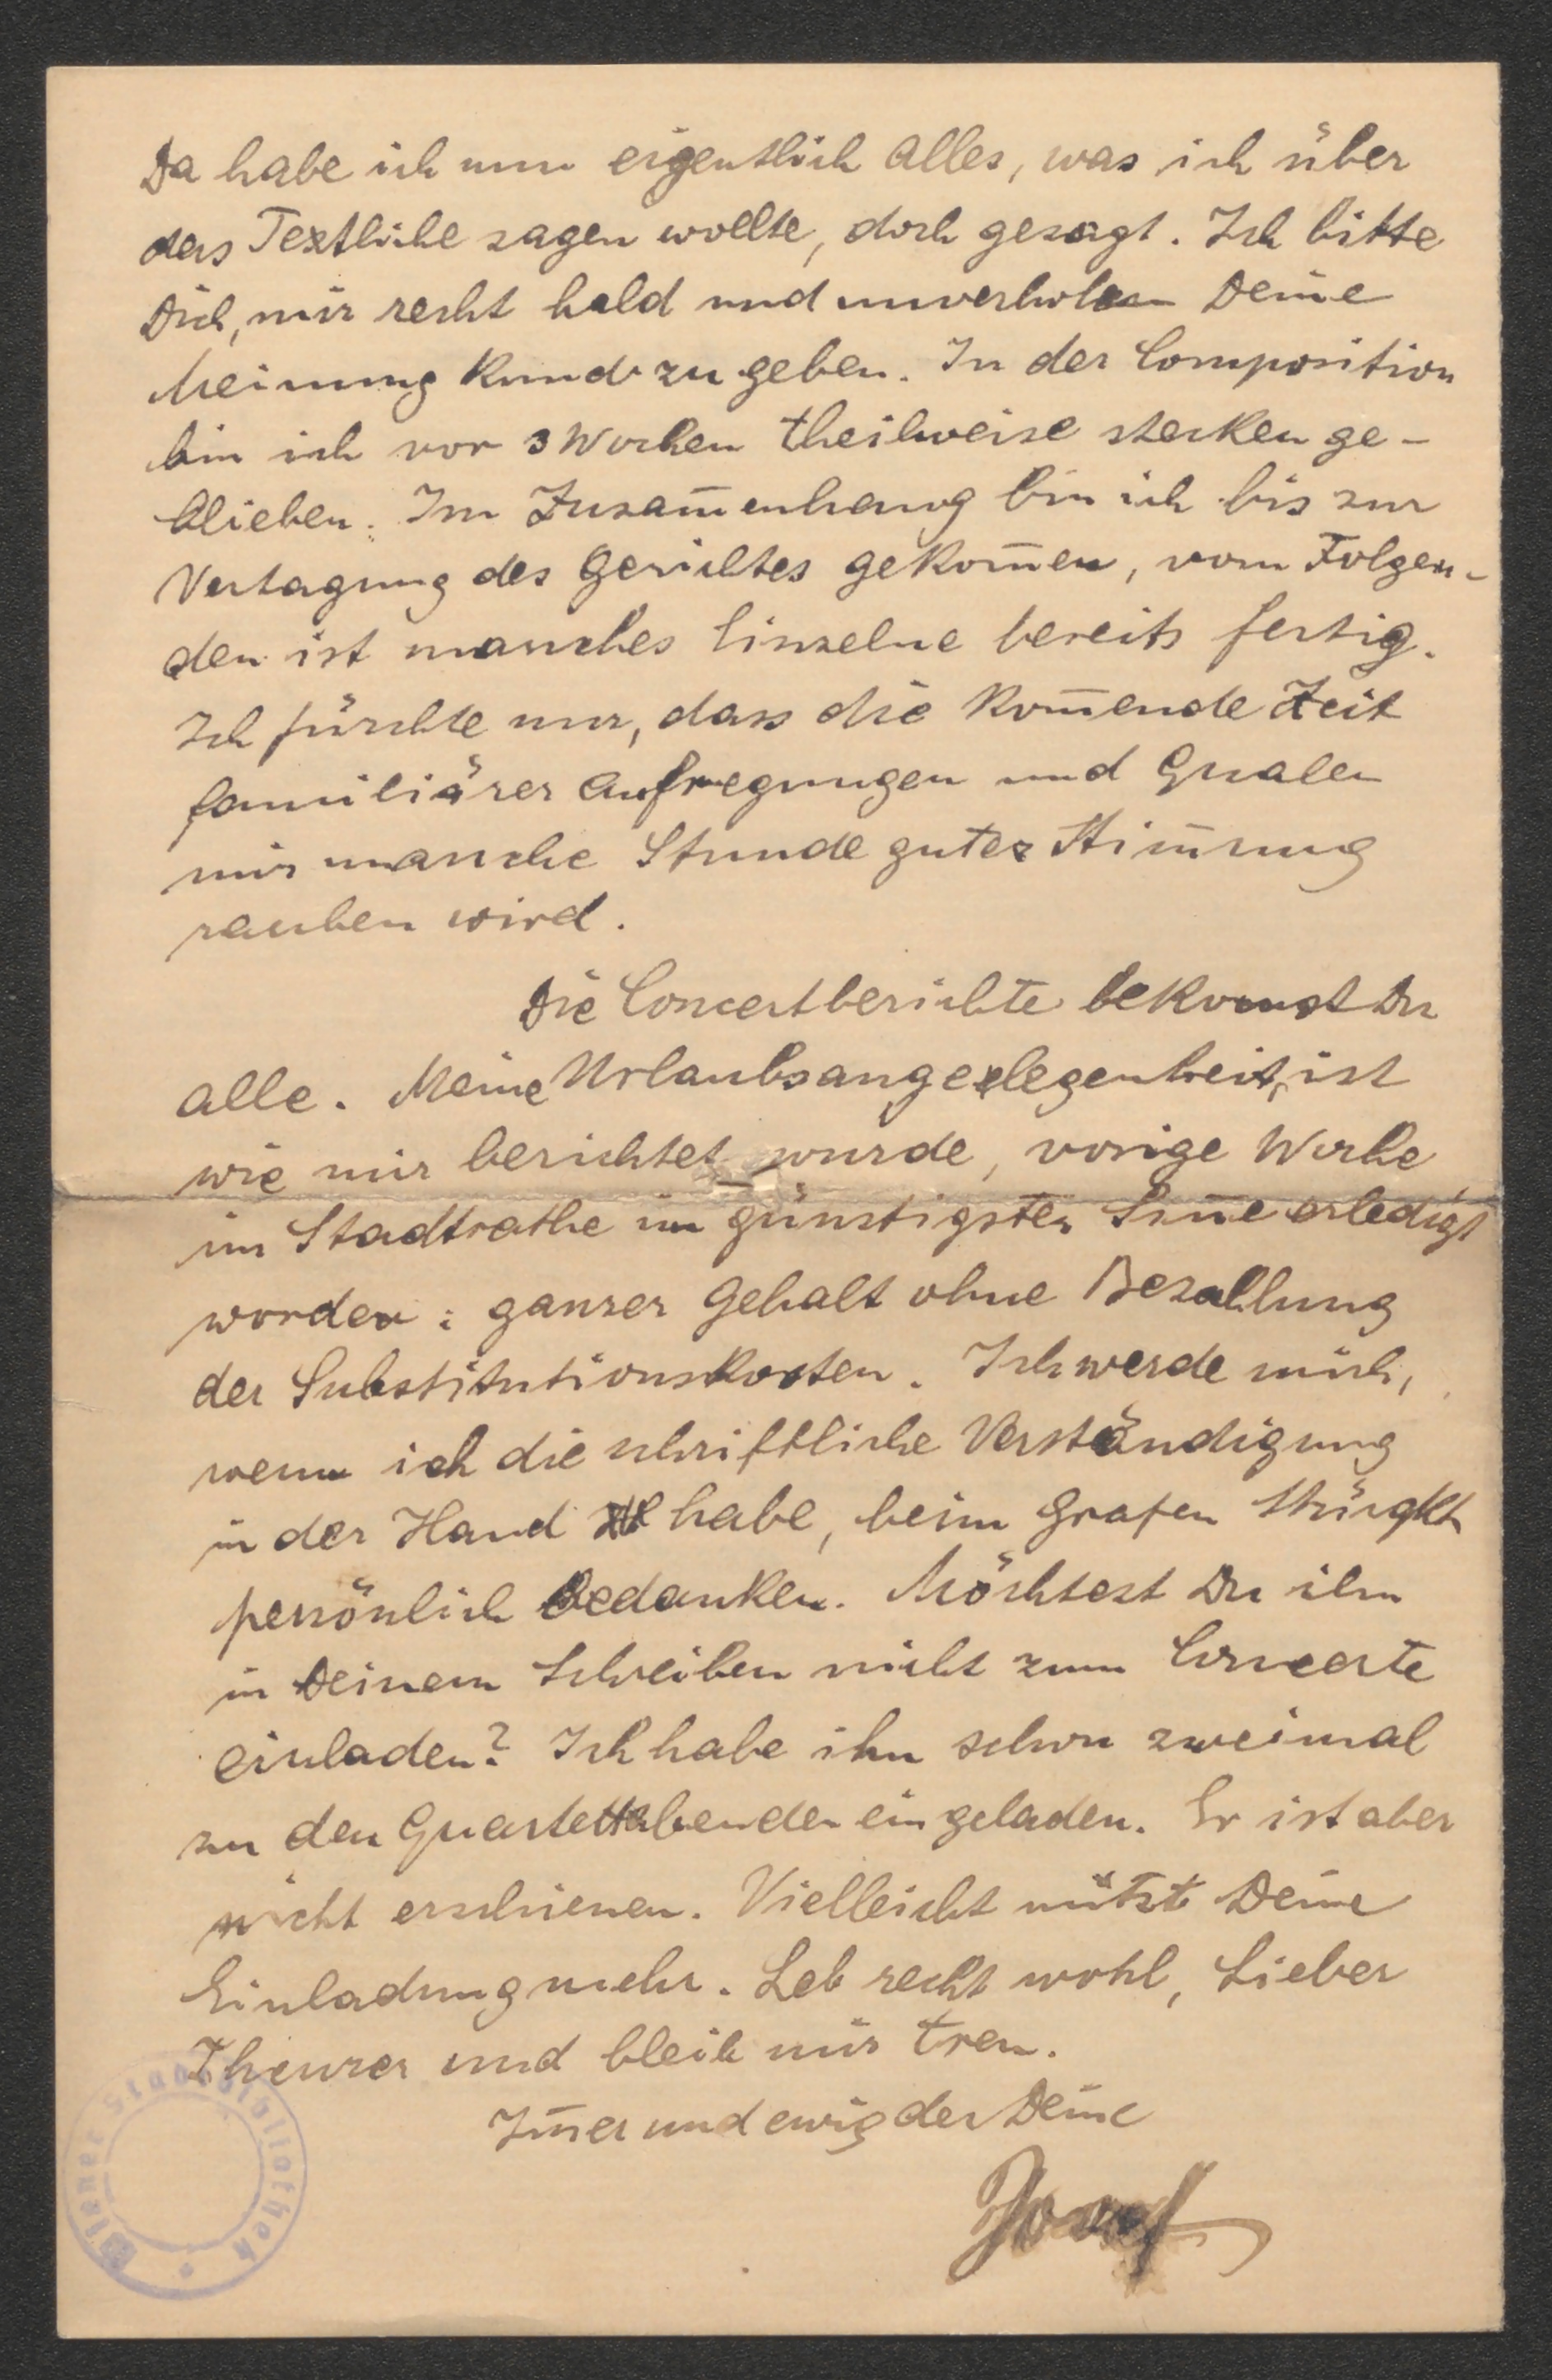 Da habe ich nun eigentlich alles, was ich über
das Textliche sagen wollte, doch gesagt. Ich bitte
Dich, mir recht bald und unverholen Deine
Meinung kund zu geben. In der Composition
bin ich vor 3 Wochen theilweise stecken ge-
blieben. Im Zusam̅enhang bin ich bis zur
Vertagung des Gerichtes gekom̅en, vom Folgen-
den ist manches Einzelne bereits fertig.
Ich fürchte nur, dass die kom̅ende Zeit
familiärer Aufregungen und Qualen
mir manche Stunde guter Stim̅ung
rauben wird.
Die Concertberichte bekommst Du
alle. Meine Urlaubsangelegenheit, ist
wie mir berichtet wurde, vorige Woche
im Stadtrathe im günstigsten Sin̅e erledigt
worden: ganzer Gehalt ohne Bezahlung
der Substitutionskosten. Ich werde mich,
wenn ich die schriftliche Verständigung
in der Hand habe, beim Grafen Stürgkh
persönlich bedanken. Möchtest Du ihn
in Deinem Schreiben nicht zum Concerte
einladen? Ich habe ihn schon zweimal
zu den Quartettabenden eingeladen. Er ist aber
nicht erschienen. Vielleicht nützt Deine
Einladung mehr. Leb recht wohl, Lieber
Theurer und bleib mir treu.
Im̅er und ewig der Deine
Josef
Wiener Stadtbibliothek